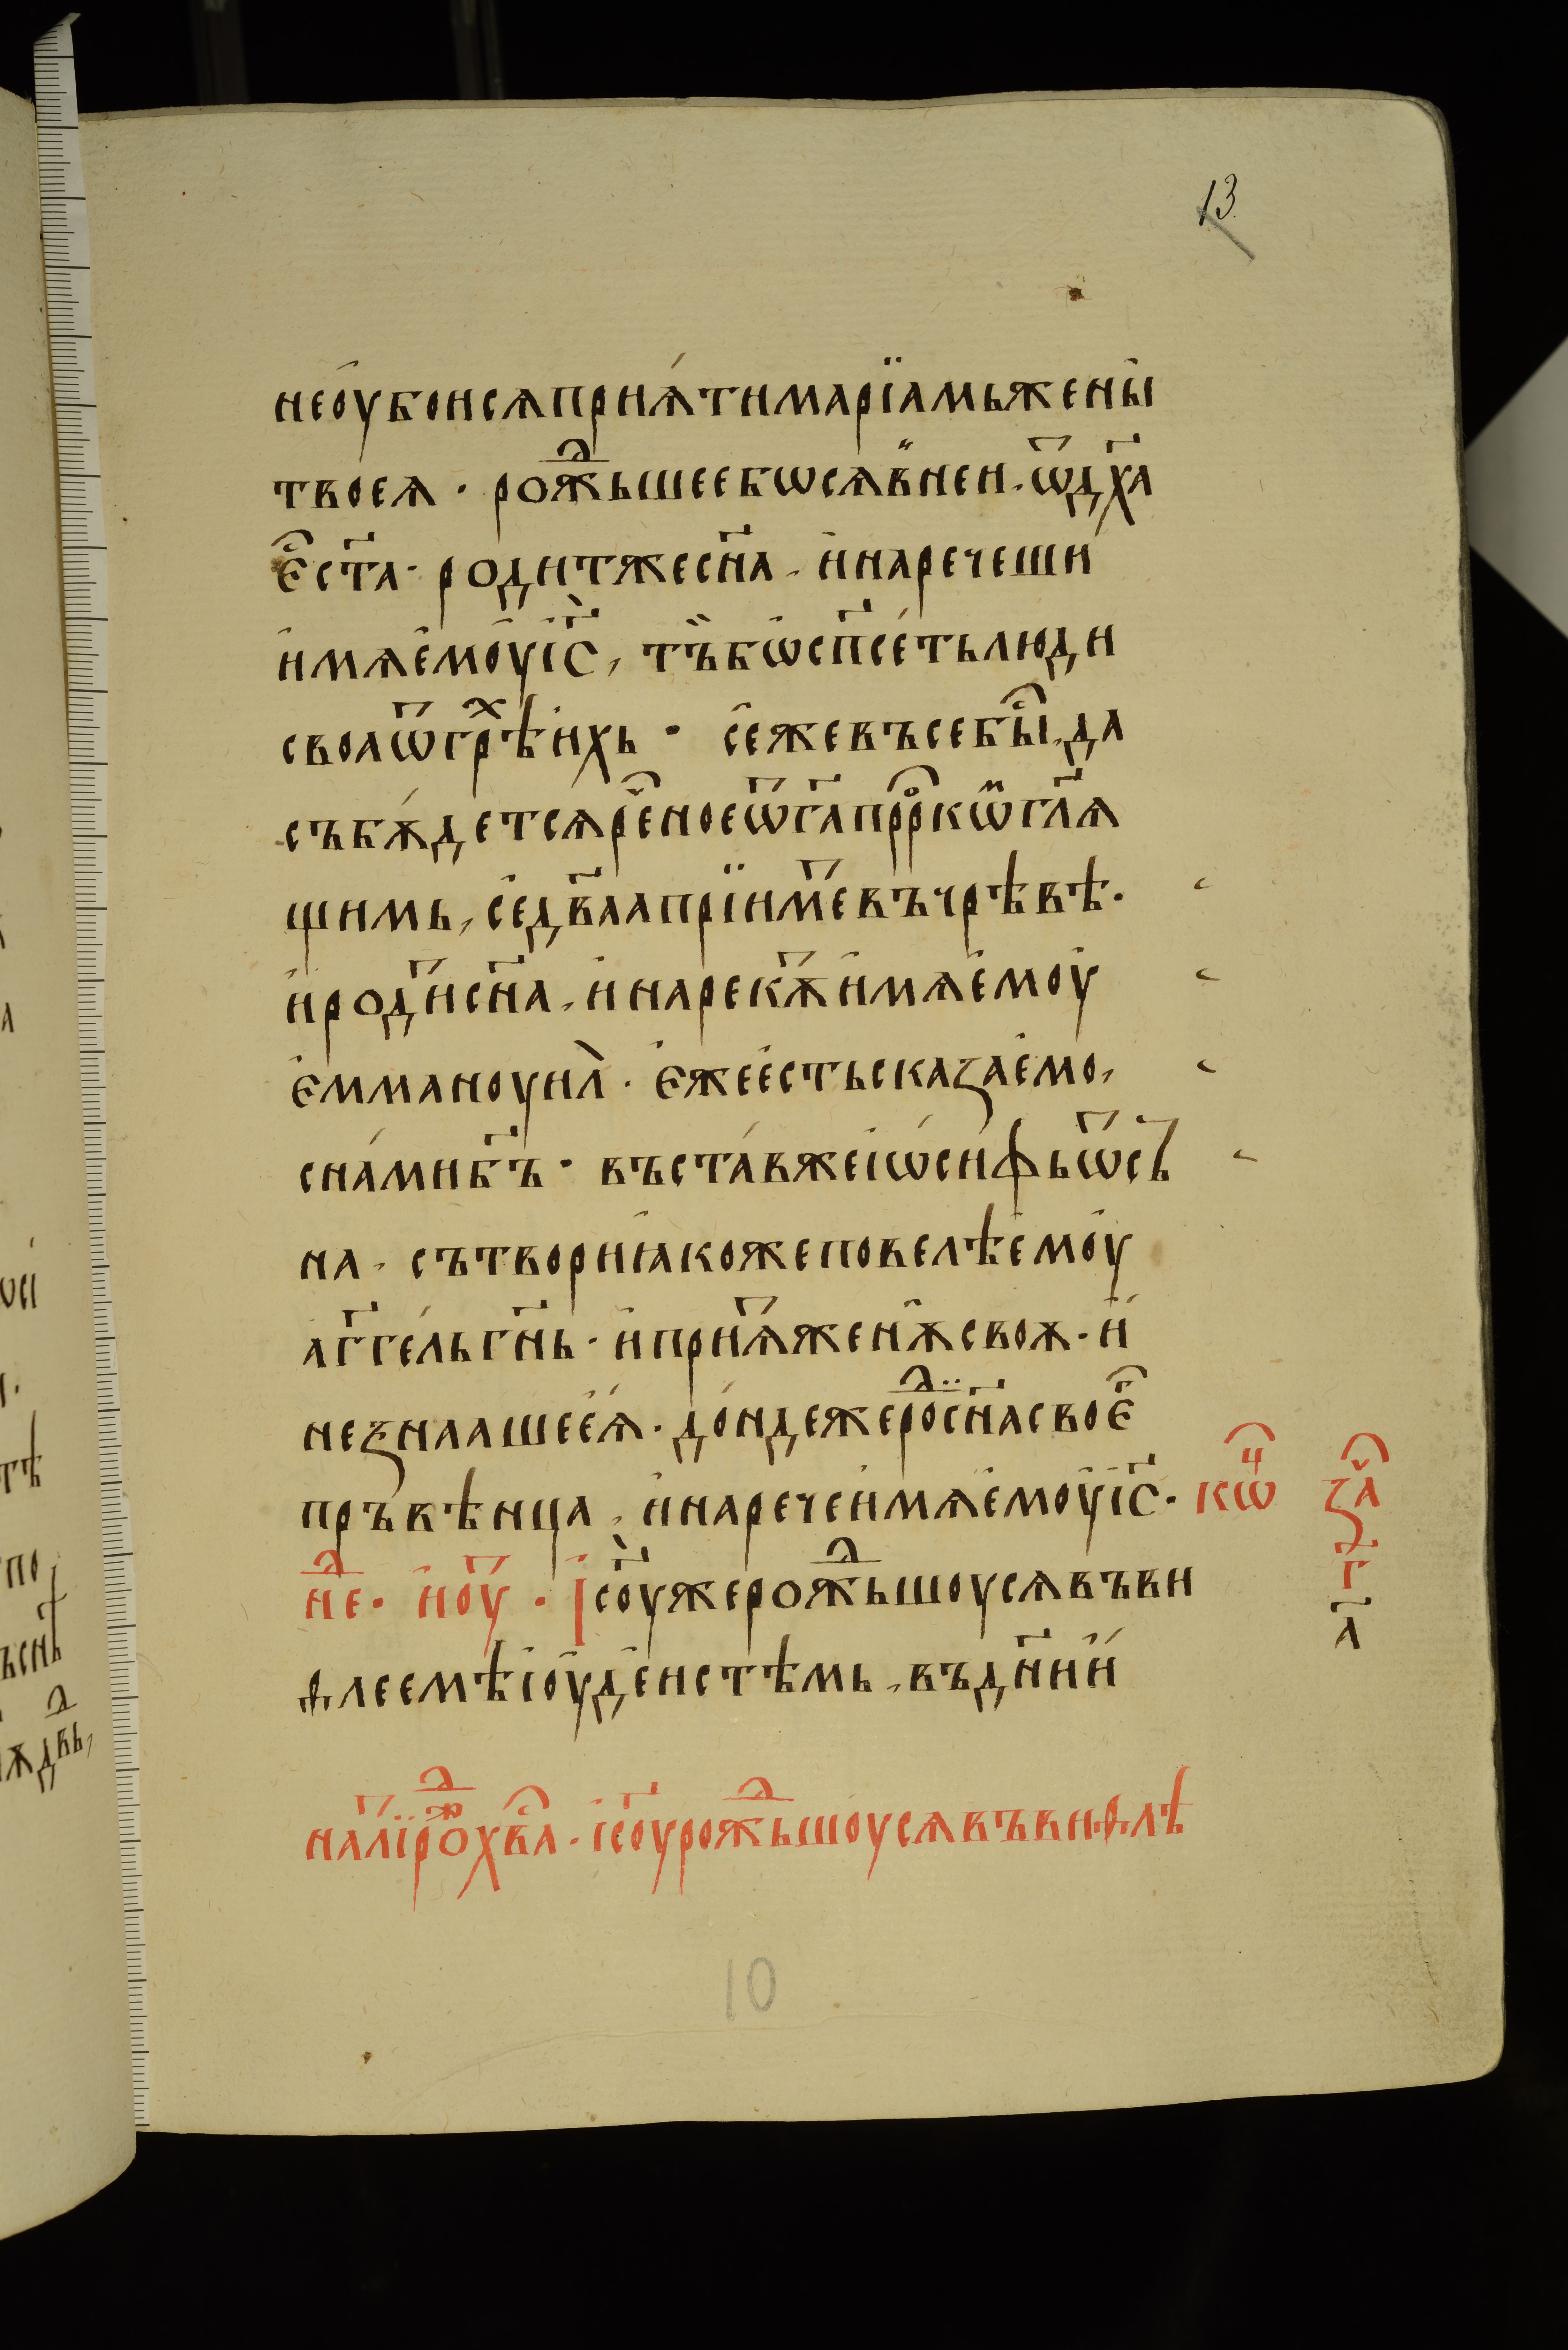 13
неоубоисѧприѧ́тимарїамьжены
твоеѧ · рожⷣьшеебѡсѧв̾неи · ѿдх҃а
є҆ст҃а · родитжесн҃а · инаречеши
имѧемоуіс҃, тъ̏бѡсп҃сетьлюди
своаѿгрѣⷯихь · сежевъсебы́ⷭ, да
събѫ́детсѧреⷱ҇ноеѿг҃апрⷪ҇ркѡⷨгл҃ѧ
щимь, седв҃аапрїиметⷮвъчрѣвѣ ·
иродиⷮсн҃а, инарекѫⷮимѧемоу
Еммануил̀ · Ежеестьсказаемо,
снамибг҃ъ · въставжеіѡсифьѿсъ
на · сътвориіакожеповелѣемоу
аг҃гельгн҃ь · ипріѧⷮженѫсвоѫ · и
незнаашееѧ · дондежероⷣсн҃асвоеⷢ҇
пръвѣнца, инаречеимѧемоуіс҃ · кѡⷩ҇ заⷱ҇
неⷣ · иноуⷮ · Іс҃оужерожⷣьшоусѧвъви г҃
ѳлеемѣіоуденстѣмь, въдн҃ии а҃
налⷮїрожⷣⷭ҇хв҃а · іс҃оурожⷣьшоусѧвъвиѳлѣ
10